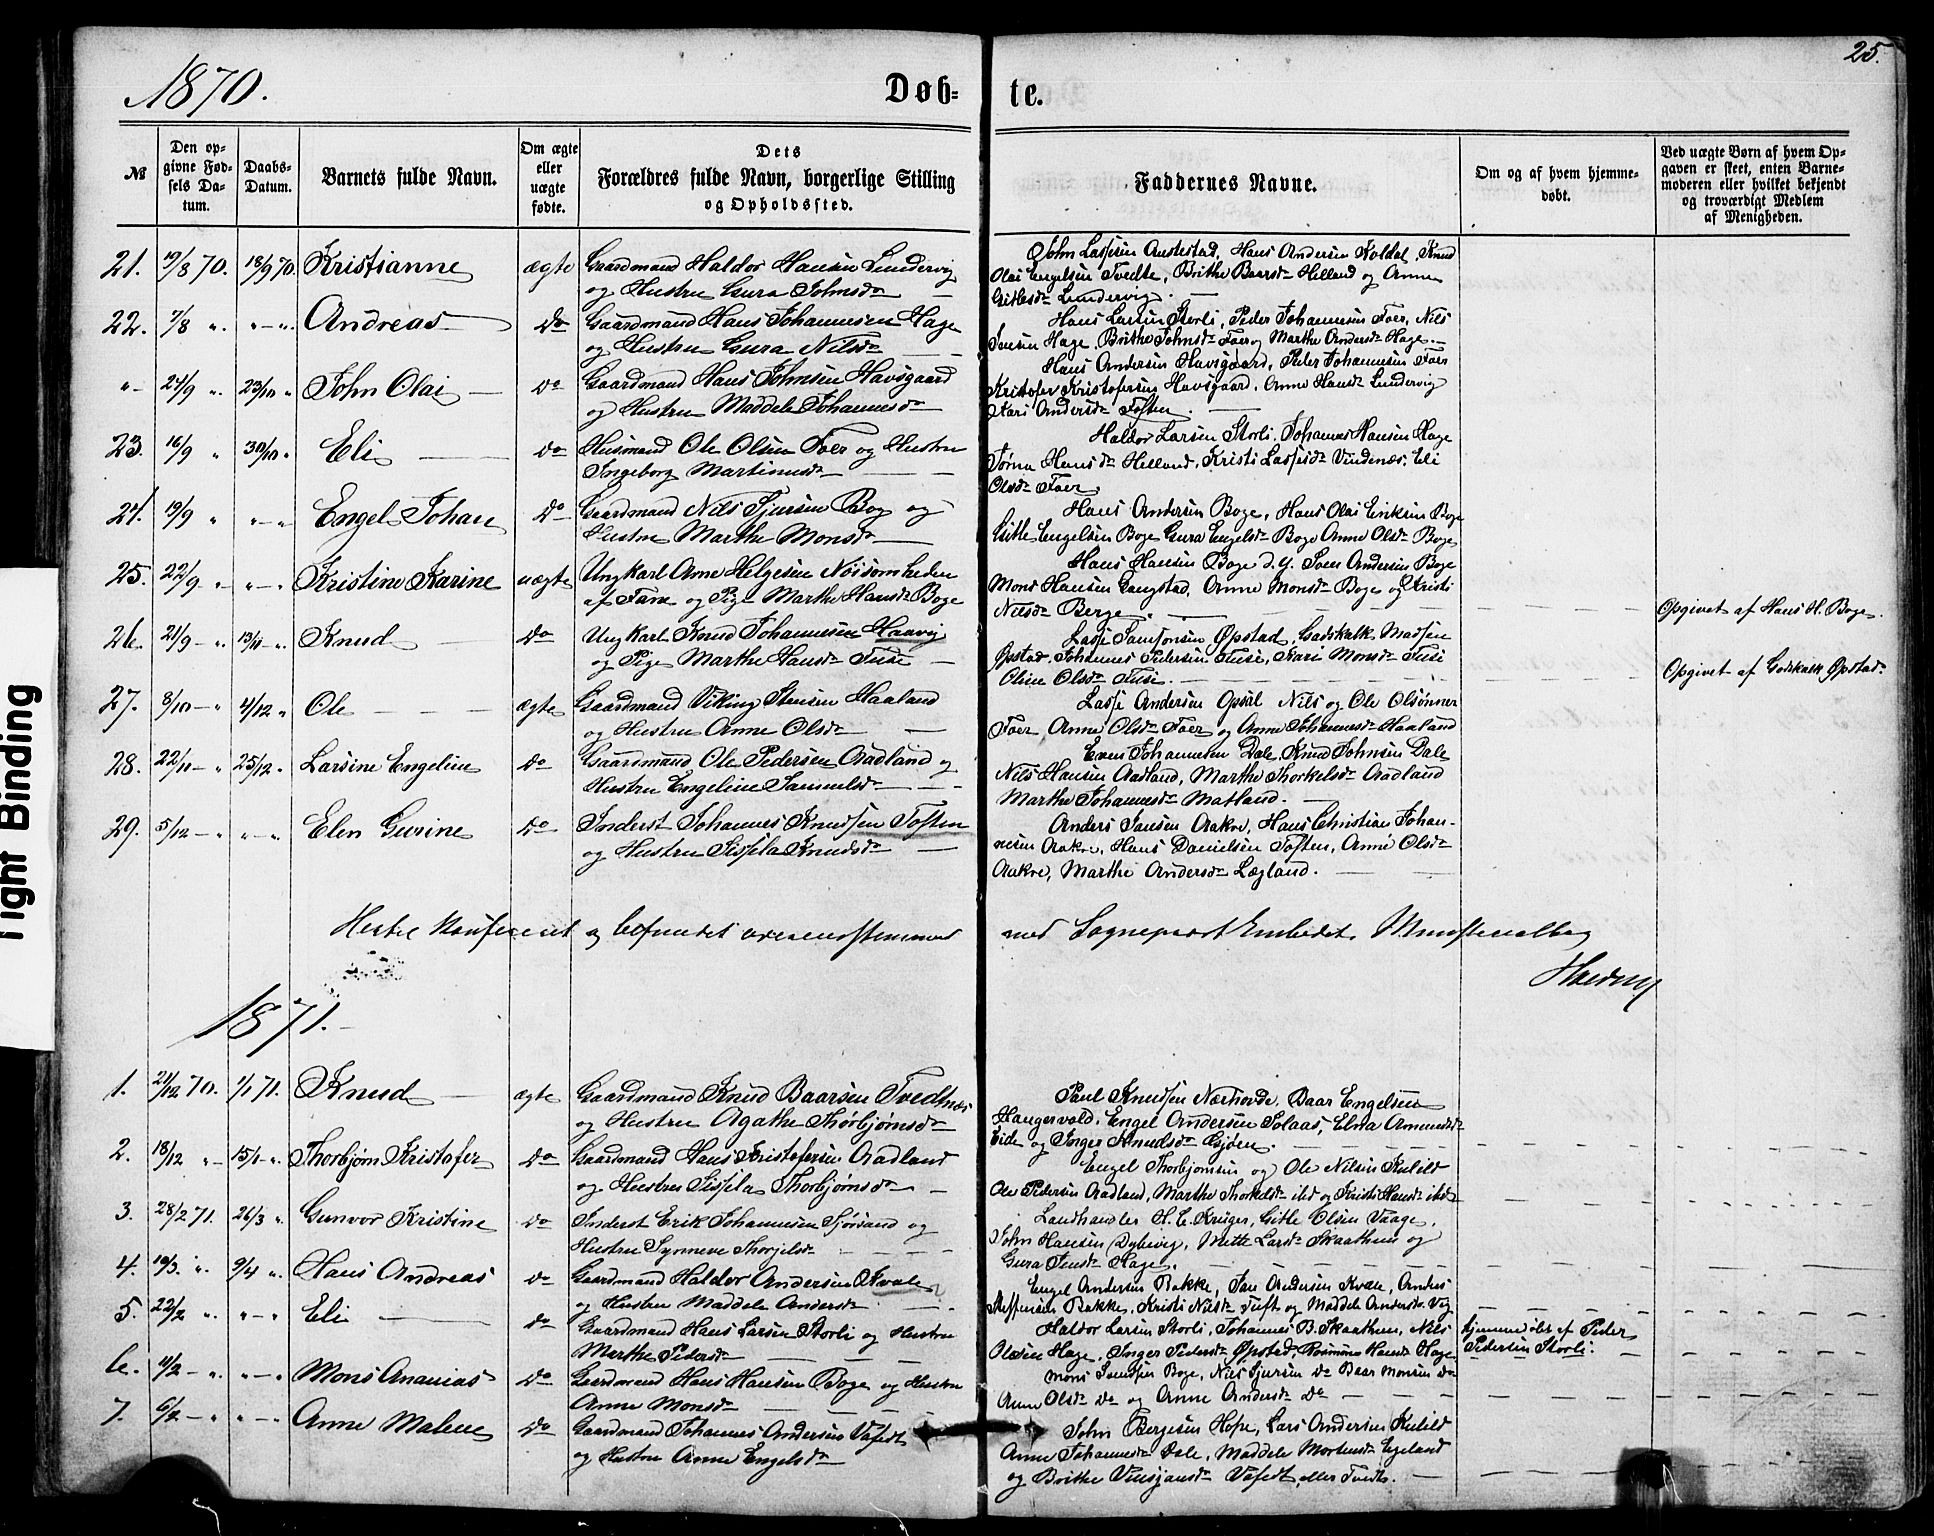 25.
1870.
Døb- te.
№
Den opgivne Fødsels Datum.
Daabs-Datum.
Barnets fulde Navn.
Om ægte eller uægte fødte.
Dets Forældres fulde Navn, borgerlige Stilling og Opholdssted.
Faddernes Navne.
Om og af hvem hjemmedøbt.
Ved uægte Børn af hvem Opgaven er skeet, enten Barnemoderen eller hvilket bekjendt og troværdigt Medlem af Menigheden.
21. 19/8 70. 18/9 70. Kristianne ægte Gaardmand Haldor Hansen Lundervig
og Hustru Gura Johnsdr
John Lassesen Austestad, Hans Andersen Koldal, Knud
Olai Engelsen Tvedte, Brithe Baarsdr Helland og Anne
Gitlesdr Lundervig.
22. 7/8 " "-" Andreas Do Gaardmand Hans Johannesen Hage
og Hustru Gura Nilsdr
Hans Larsen Storli, Peder Johannesen Foer, Nils
Hage, Brithe Johnsdr Foer og Marthe Andersdr Hage.
" 24/9 " 23/10 " John Olai Do Gaardmand Hans Johnsen Havsgaard
og Hustru Maddele Johannesdr
Hans Andersen Havsgaard, Peder Johannesen Foer
Kristofer Kristofersen Havsgaard, Anne Hansdr Lundervig
Kari Andersdr Toften.
23. 16/9 " 30/10 " Eli Do Husmand Ole Olsen Foer og Hustru
Ingeborg Martinusdr
Haldor Larsen Storli, Johannes Hansen Hage
Hansdr Helland, Kristi Lassesdr Vindenæs, Eli
Olsdr Foer.
24. 19/9 " "-" Engel Johan Do Gaardmand Nils Sjursen Bog og
Hustru Marthe Monsdr
Hans Andersen Boge, Hans Olai Eriksen Boge
Gitle Engelsen Boge Gura Engelsdr Boge Anne Olsdr Boge
25. 22/9 - " "-" Kristine Karine uægte Ungkarl Arne Helgesen Nøisomheden
af Fane og Pige Marthe Hansdr Boge
Hans Hansen Boge d.y. Sven Andersen Boge
Mons Hansen Langstad, Anne Monsdr Boge og Kristi
Nilsdr Berge.
Opgivet af Hans H. Boge.
26. 21/9 - " 13/11 - " Knud Do Ungkarl Knud Johannesen Haavig
og Pige Marthe Hansdr Fuse
Lasse Samsonsen Øpstad, Godskalk Madsen
Øpstad, Johannes Pedersen Fuse, Kari Monsdr Fuse
Oline Olsdr Fuse.
Opgivet af Godskalk Øpstad.
27. 8/10 - " 4/12 " Ole ægte Gaardmand Viking Stensen Haaland
og Hustru Anne Olsdr
Lasse Andersen Opsal Nils og Ole Olsønner
Foer Anne Olsdr Foer og Anne Johannesdr Haaland
28. 22/11 - " 25/12 " Larsine Engeline Do Gaardmand Ole Pedersen Aadland og
Hustru Engeline Samuelsdr
Even Johannesen Dale, Knud Johnsen Dale
Nils Hansen Aadland, Marthe Thorkelsdr Aadland
Marthe Johannesdr Matland.
29. 5/12 - " "-" Elen Gurine Do Inderst Johannes Knudsen Toften
og Hustru Sissela Knudsdr
Anders Jansen Aakre, Hans Christian Johannesen Aakre, Hans Danielsen Toften, Anne Olsdr
Aakre, Marthe Andersdr Lægland.
Hertil konfereret og befundet overensstemmende
med Sognepræst Embedets Ministerialbog
1871.
1. 21/12 70. 1/1 71. Knud ægte Gaardmand Knud Baarsen Tvedtnæs
og Hustru Agathe Thorbjørnsdr
Paul Knudsen Nærhovde, Baar Engelsen
Haugervold, Engel Andersen Solaas, Elna Amundsdr
Eide og Inger Knudsdr Gjøen.
2. 18/12 " 15/1 - " Thorbjørn Kristofer Do Gaardmand Hans Kristofersen Aadland
og Hustru Sissela Thorbjørnsdr
Engel Thorbjørnsen og Ole Nilsen Kulild
Ole Pedersen Aadland, Marthe Thorkelsdr ibd og Kristi Hansdr ibd
3. 28/2 71. 26/3 " Gunvor Kristine Do Inderst Erik Johannesen Sjøsand og
Hustru Synneve Thorgilsdr
Landhandler H. E. Krüger, Gitle Olsen Vaage,
John Hansen Dybevig, Mette Larsdr Skaathun og
Gura Jensdr Hage.
4. 10/3. " 9/4 " Hans Andreas Do Gaardmand Haldor Andersen Kvale
og Hustru Maddele Andersdr
Engel Andersen Bakke, Jan Andersen Kvale, Anders
Steffensen Bakke, Kristi Nilsdr Tuft og Maddele Andersdr Vig
5. 22/2 " "-" Eli Do Gaardmand Hans Larsen Storli og Hustru
Marthe Pedersdr
Haldor Larsen Storli, Johannes B. Skaathun, Nils
Olsen Hage, Inger Pedersdr Øpstad, Hansdr Hage
hjemmedøbt af Peder
Pedersen Storli.
6. 11/2 - " "-" Mons Ananias Do Gaardmand Hans Hansen Boge og Hustru
Anne Monsdr
Mons Boge, Nils Sjursen Do Baar Monsen Do
Anne Olsdr Do og Anne Andersdr Do
7. 6/2 - " "-" Anne Malene Do Gaardmand Johannes Andersen Vafedt
og Hustru Anne Engelsdr
John Børgesen Hope, Lars Andersen Kulild
Anne Johannesdr Dale, Maddele Mortensdr Egeland
og Brithe Vafedt, eller Tvedt.
Tight Binding